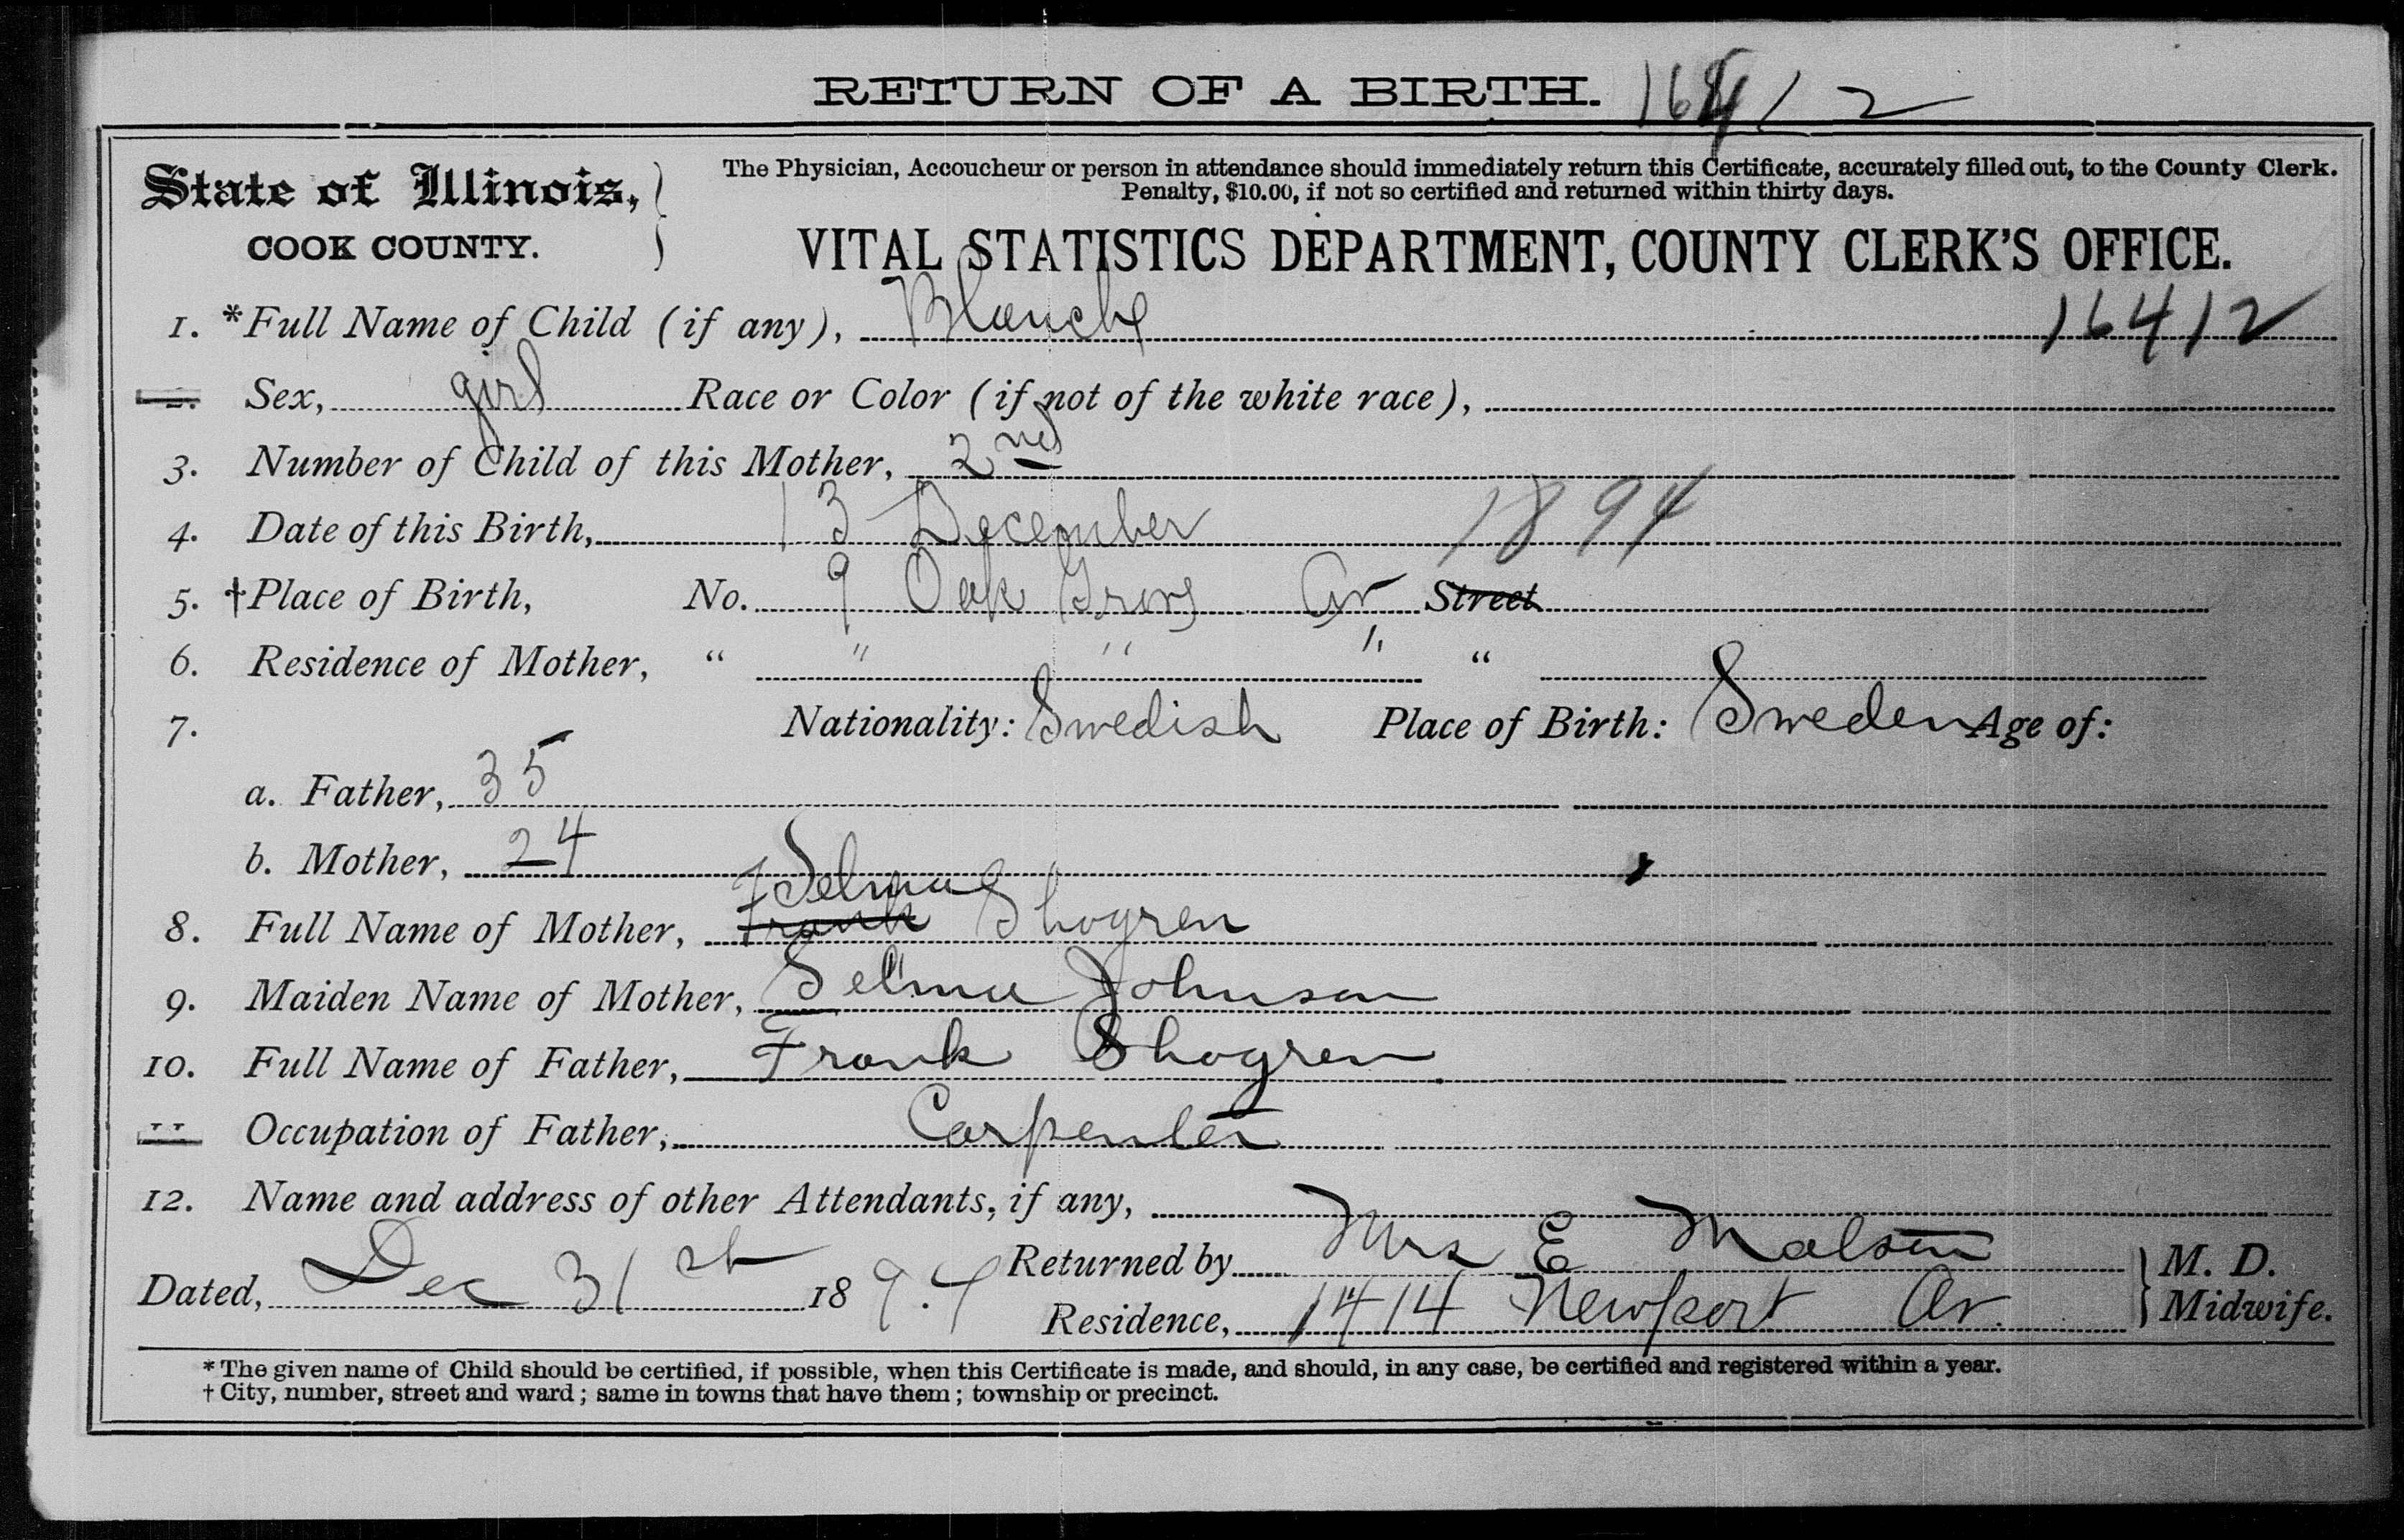 RETURN OF A BIRTH. 16412
State of Illinois,
COOK COUNTY.
The Physician, Accoucheur or person in attendance should immediately return this Certificate, accurately filled out, to the County Clerk.
Penalty, $10.00, if not so certified and returned within thirty days.
VITAL STATISTICS DEPARTMENT, COUNTY CLERK'S OFFICE.
1. *Full Name of Child (if any), Blanche 16412
2. Sex, girl Race or Color (if not of the white race),
3. Number of Child of this Mother, 2nd
4. Date of this Birth, 13 December 1894
5. †Place of Birth, No. 9 Oak Grov Av Street
6. Residence of Mother, " " " " "
7. Nationality: Swedish Place of Birth: Sweden Age of:
a. Father, 35
b. Mother, 24
Selma
8. Full Name of Mother, Frank Shogren
9. Maiden Name of Mother, Selma Johnson
10. Full Name of Father, Frank Shogren
11 Occupation of Father, Carpenter
12. Name and address of other Attendants, if any,
Dated, Dec 31st 189.4
Returned by Mrs E Malstin M. D.
Residence, 1414 Newport Av. Midwife.
* The given name of Child should be certified, if possible, when this Certificate is made, and should, in any case, be certified and registered within a year.
† City, number, street and ward; same in towns that have them; township or precinct.